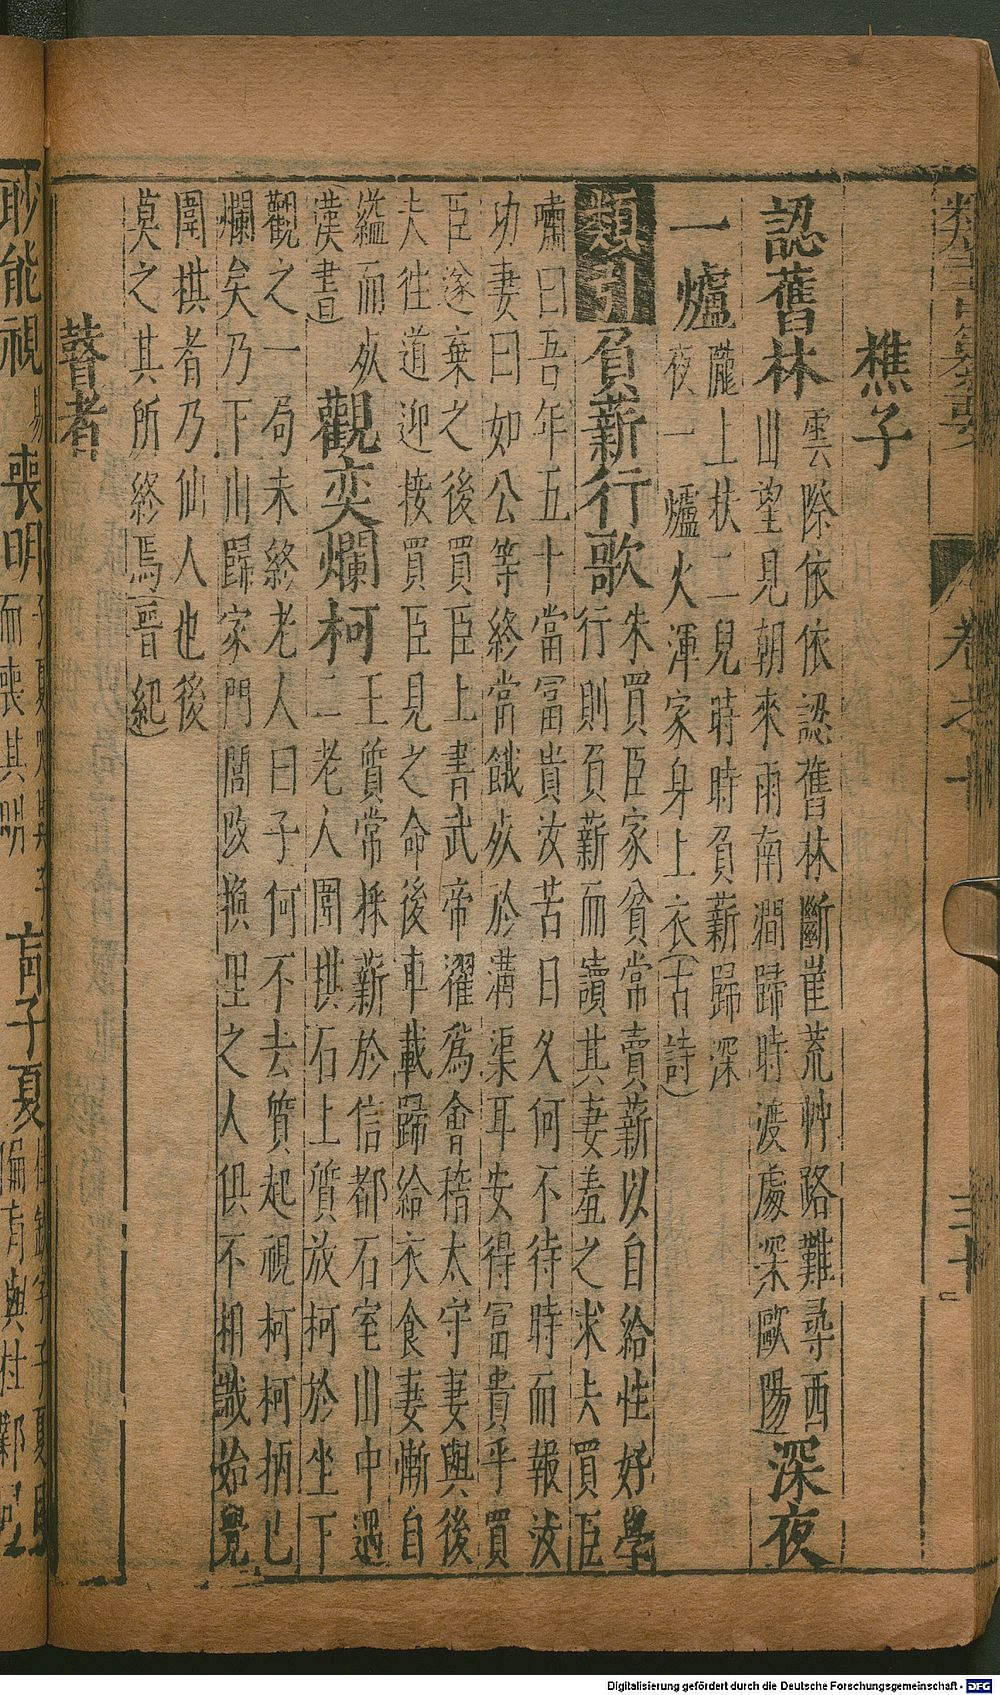 樵子
認舊林
雲際依依認舊林斷崖荒艸路難尋西
山望見朝來雨南澗歸時渡處深歐陽
深夜
一爐
隴上扶二兒時時負薪歸深
夜一爐火渾家身上衣(古詩)
類引
負薪行歌
朱買臣家貧常賣薪以自給性好學
行則負薪而讀其妻羞之求去買臣
嘯曰吾年五十當冨貴汝苦日久何不待時而報汝
功妻曰如公等終當餓死於溝渠耳安得富貴乎買
臣遂棄之後買臣上書武帝濯為會稽太守妻與後
夫往道迎接買臣見之命後車載歸給衣食妻慚自
縊而死(漢書)
觀奕爛柯
王質常採薪於信都石室川中遇
二老人圍棋石上質放柯於坐下
觀之一局未終老人曰子何不去質起視柯柯柄已
爛矣乃下川歸家門閭改換里之人俱不相識始覺
圍棋者乃仙人也後
莫之其所終焉(晉紀)
瞽者
眇能視
喪明
而喪其明
盲子夏
Digitalisierung gefördert durch die Deutsche Forschungsgemeinschaft - DFG